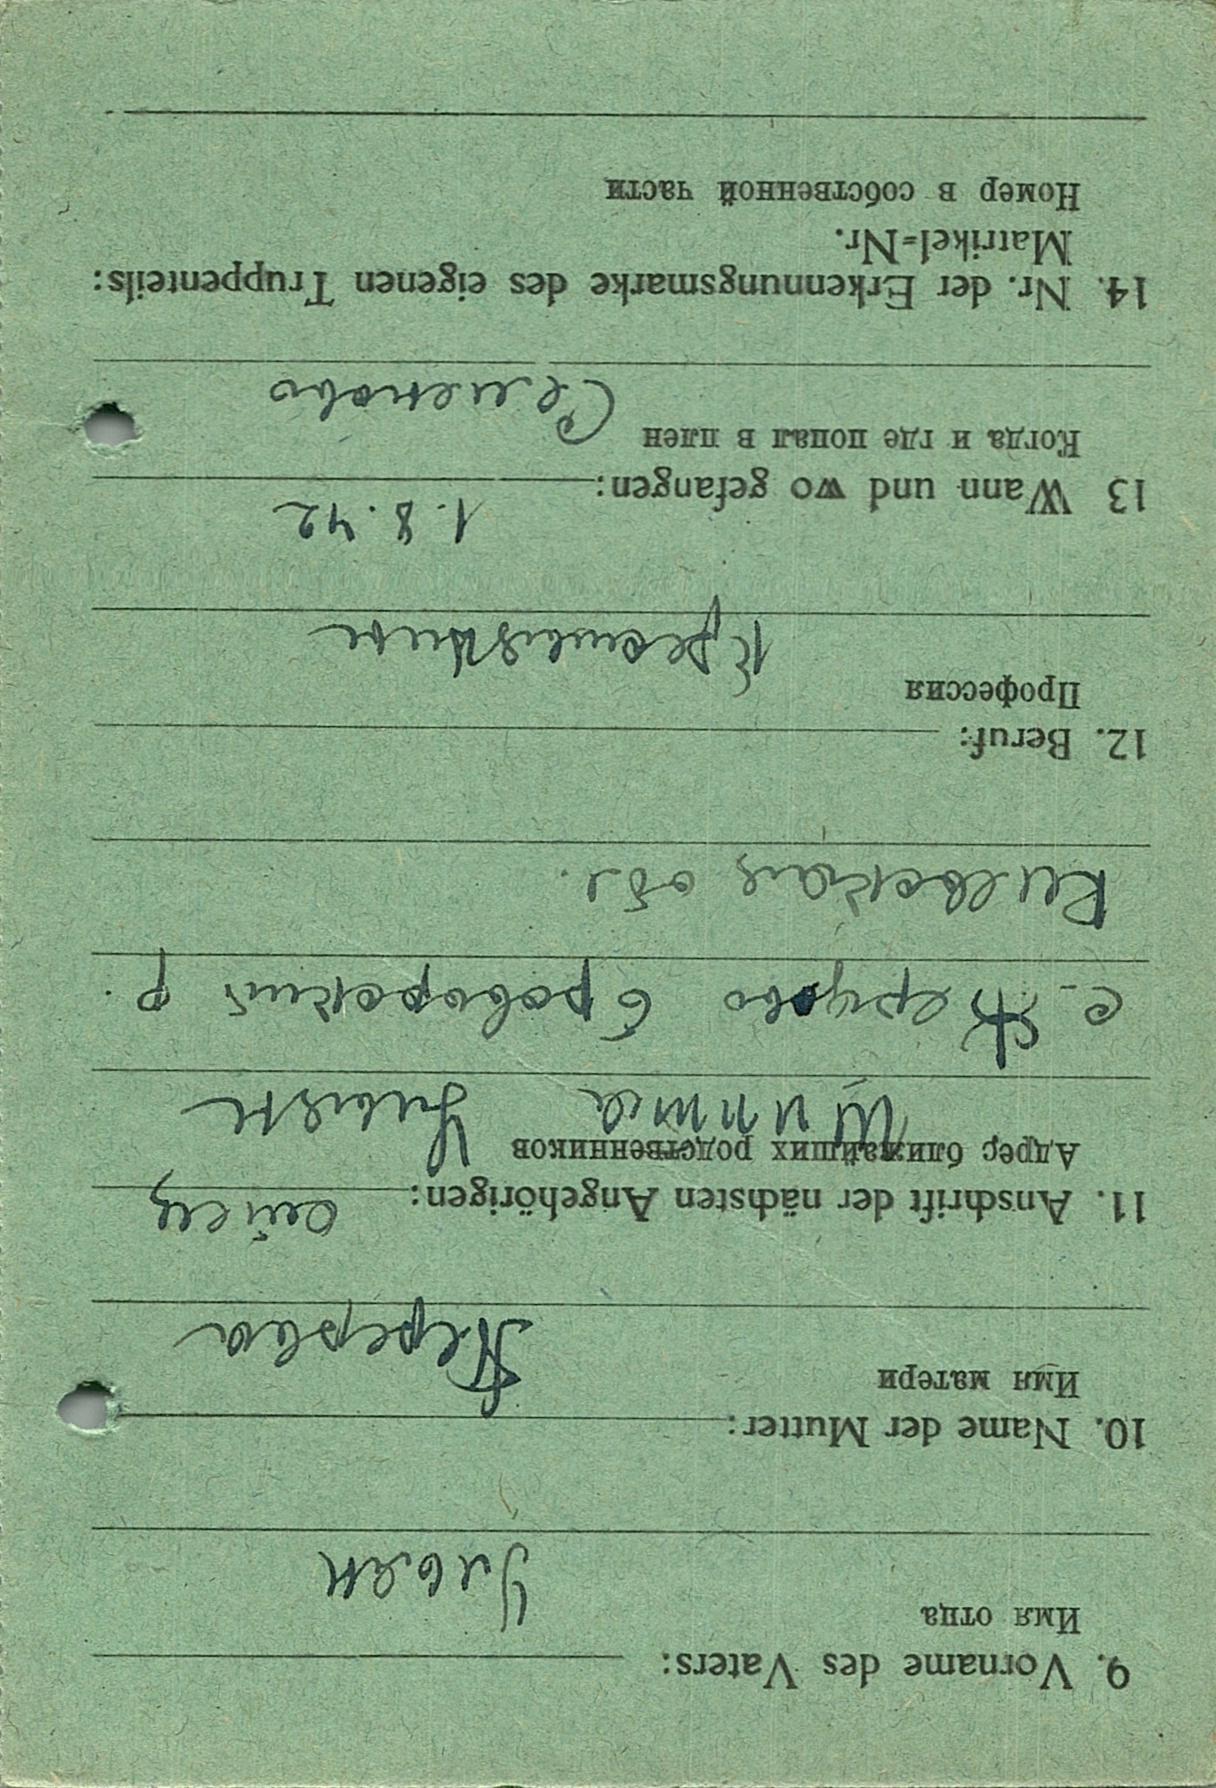 9. Vorname des Vaters:
Имя отца
Ульян
10. Name der Mutter:
Имя матери
11. Anschrift der nächsten Angehörigen: отец
Адрес ближайших родственников
Шипта Ульян
с. Жердово Броварский р.
Киевская обл.
12. Beruf:
Профессия
13 Wann und wo gefangen: 1. 8. 42
Когда и где попал в плен
Семеново
14. Nr. der Erkennungsmarke des eigenen Truppenteils:
Matrikel=Nr.
Номер в собственной части